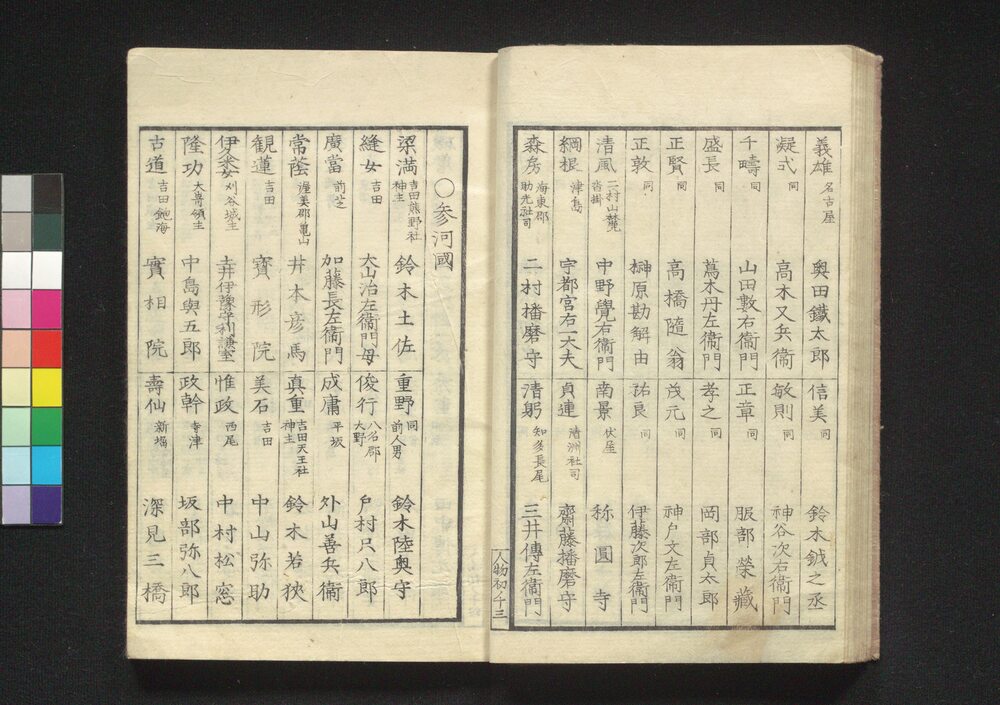 義雄 名古屋 奥田鐵太郎
凝弌 同 高木又兵衛
千疇 同 山田數右衞門
盛長 同 蔦木丹左衞門
正賢 同 高橋隨翁
正敦 同 榊原勘解由
清風 二村山麓 沓掛 中野覺右衞門
綱根 津島 宇都宮右一大夫
森房 海東郡 助光社司 二村播磨守
信美 同 鈴木鉞之丞
敏則 同 神谷次右衞門
正章 同 服部榮藏
孝之 同 岡部貞太郎
茂元 同 神戸文左衞門
祐良 同 伊藤次郎左衞門
南景 伏屋 称圓寺
貞連 清洲社司 齋藤播磨守
清躬 知多長尾 三井傳左衞門
人物初ノ十三
○参河國
梁満 吉田熊野社 神主 鈴木土佐
縫女 吉田 大山治左衞門母
廣當 前芝 加藤長左衞門
常蔭 渥美郡亀山 井本彦馬
観蓮 吉田 寶形院
伊久女 刈谷城主 土井伊豫守利謙室
隆功 大嵜領主 中島與五郎
古道 吉田飽海 實相院
重野 同 前人男 鈴木陸奥守
俊行 八名郡 大野 戸村尺八郎
成庸 平坂 外山善兵衞
真重 吉田天王社 神主 鈴木若狹
美石 吉田 中山弥助
惟政 西尾 中村松窓
政幹 寺津 坂部弥八郎
壽仙 新堀 深見三橋